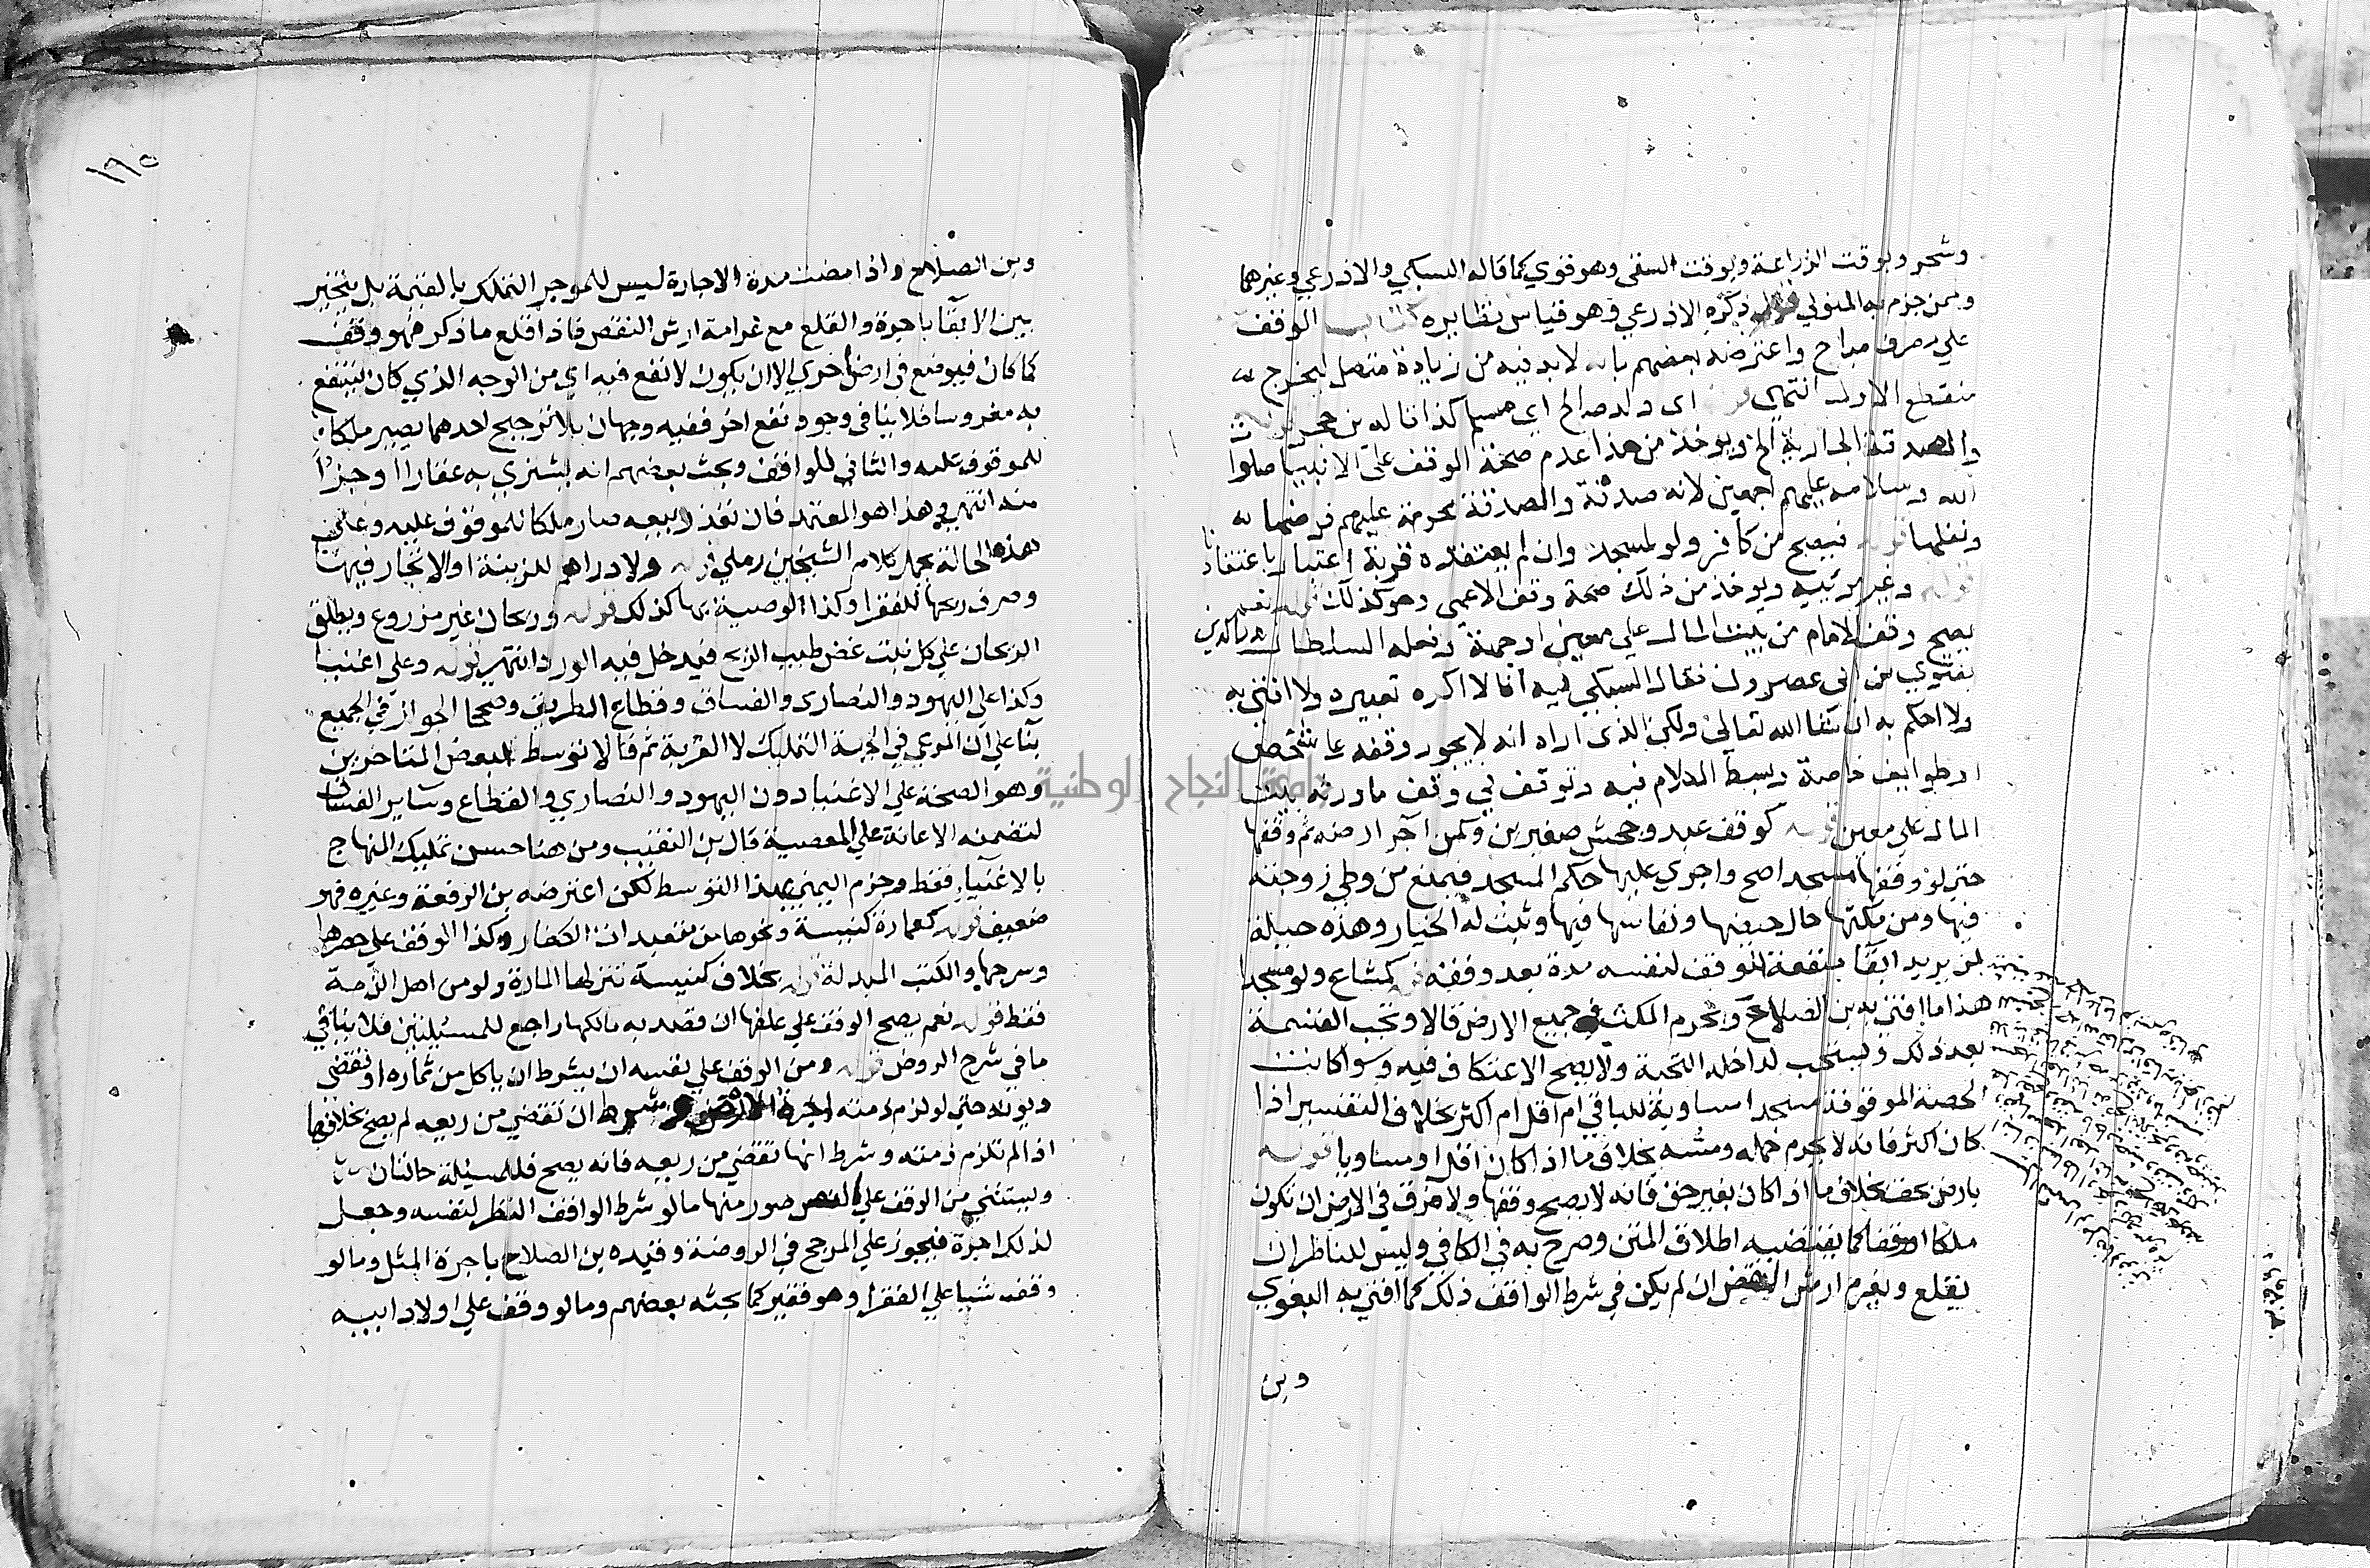 وشحر وبوقت الزراعة وبوقت السقي وهو قوي كما قاله السبكي والاذرعي وغيرهما
وممن جزم به المتولي ذكره الاذرعي وهو قياس نظايره كتاب الوقف
علي مصرف مباح واعترضه بعضهم بانه لا بد فيه من زيادة متصل ليخرج به
منقطع الاول انتهي اي ولد صالح اي مسلم كذا قاله بن حجر قوله
والصدقة الجارية الخ ويوخذ من هذا عدم صحة الوقف علي الانبيا صلوات
الله وسلامه عليهم اجمعين لانه صدقة والصدقة محرمة عليهم فرضها
ونفلها قوله فيصح من كافر ولو لمسجد وان لم يعتقده قربة اعتبارا باعتقادنا
قوله وغير مرئيه ويوخذ من ذلك صحة وقف الاعمي وهو كذلك قوله نعم
يصح وقف الامام من بيت المال علي معين او جهة وفعله السلطان نور الدين
بفتوي بن ابي عصرون فقال السبكي فيه انا لا اكره تعييره ولا افتي به
ولا احكم به ان شا الله تعالي ولكن الذي اراه انه لا يجوز وقفه علي شخص
او طوايف خاصة وبسط الكلام فيه وتوقف في وقف ما دربه بيت
المال علي معين قوله كوقف عبد وجحش صغيرين وكمن آجر ارضه ثم وقفها
حتي لو وقفها مسجدا صح واجري عليها حكم المسجد فيمنع من وطي زوجته
فيها ومن مكثها حال حيضها ونفاسها فيها وثبت له الخيار وهذه حيلة
لمن يريد ابقا منفعة الموقف لنفسه مدة بعد وقفه قوله كمشاع ولو مسجدا
هذا ما افتي به بن الصلاح ويحرم المكث في جميع الارض قالا وتجب القسمة
بعد ذلك ويستحب لداخله التحية ولا يصح الاعتكاف فيه وسوا كانت
الحصة الموقوفة مسجدا مساوية للباقي ام اقل ام اكثر بخلاف التفسير اذا
كان اكثر فانه لا يحرم حمله ومسه بخلاف ما اذا كان اقل او مساويا قوله
بارض بحق بخلاف ما اذا كان بغير حق فانه لا يصح وقفها ولا فرق في الارض ان تكون
ملكا او وقفا كما يقتضيه اطلاق المتن وصرح به في الكافي وليس للناظر ان
يقلع ويغرم ارش النقص ان لم يكن في شرط الواقف ذلك كما افتي به البغوي
وبن
١٩٥
وبن الصلاح واذا مضت مدة الاجارة ليس للموجر التملك بالقيمة بل يتخير
بين الابقا باجرة والقلع مع غرامة ارش النقص فاذا قلع ما ذكر فهو وقف
كما كان فيوضع في ارض اخري الا ان يكون لا نفع فيه اي من الوجه الذي كان ينتفع
به مغروسا فلا ينافي وجود نفع اخر ففيه وجهان بلا ترجيح احدهما يصير ملكا
للموقوف عليه والثاني للواقف وبحث بعضهم انه يشتري به عقارا او جزءا
منه انتهي هذا هو المعتمد فان تعذر بيعه صار ملكا للموقوف عليه وعلي
هذه الحالة يحمل كلام الشيخين رملي قوله ولا دراهم للزينة او الاتجار فيها
وصرف ربحها للفقرا وكذا الوصية بها كذلك قوله وريحان غير مزروع ويطلق
الريحان علي كل نبت غض طيب الريح فيدخل فيه الورد انتهي قوله وعلي اغنيا
وكذا علي اليهود والنصاري والفساق وقطاع الطريق وصححا الجواز في الجميع
بنا علي ان المرعي في الجهة التمليك لا القربة ثم قالا لا توسط لبعض المتاخرين
وهو الصحة علي الاغنيا دون اليهود والنصاري والقطاع وساير الفساق
لتضمنه الاعانة علي المعصية قال بن النقيب ومن هنا حسن تمليك المنهاج
بالاغنياء فقط وجزم اليمني بهذا التوسط لكن اعترضه بن الرفعة وغيره فهو
ضعيف قوله كعمارة كنيسة ونحوها من متعبدات الكفار وكذا الوقف علي حصرها
وسرجها والكتب المبدلة قوله بخلاف كنيسة تنزلها المارة ولو من اهل الذمة
فقط قوله نعم يصح الوقف علي علفها ان قصد به مالكها راجع للمسئيلتين فلا ينافي
ما في شرح الروض قوله ومن الوقف علي نفسه ان يشرط ان ياكل من ثماره او تقضي
ديونه حتي لو لزم ذمته اجرة الارض وشرط ان تقضي من ريعه لم يصح بخلاف ما
اذا لم تلزم ذمته وشرط انها تقضي من ريعه فانه يصح فللمسئيلة حالتان
ويستثني من الوقف علي النفس صور منها ما لو شرط الواقف النظر لنفسه وجعل
لذلك اجرة فيجوز علي المرجح في الروضة وقيده بن الصلاح باجرة المثل وما لو
وقف شيا علي الفقرا وهو فقير كما بحثه بعضهم وما لو وقف علي اولاد ابيه
جامعة النجاح الوطنية